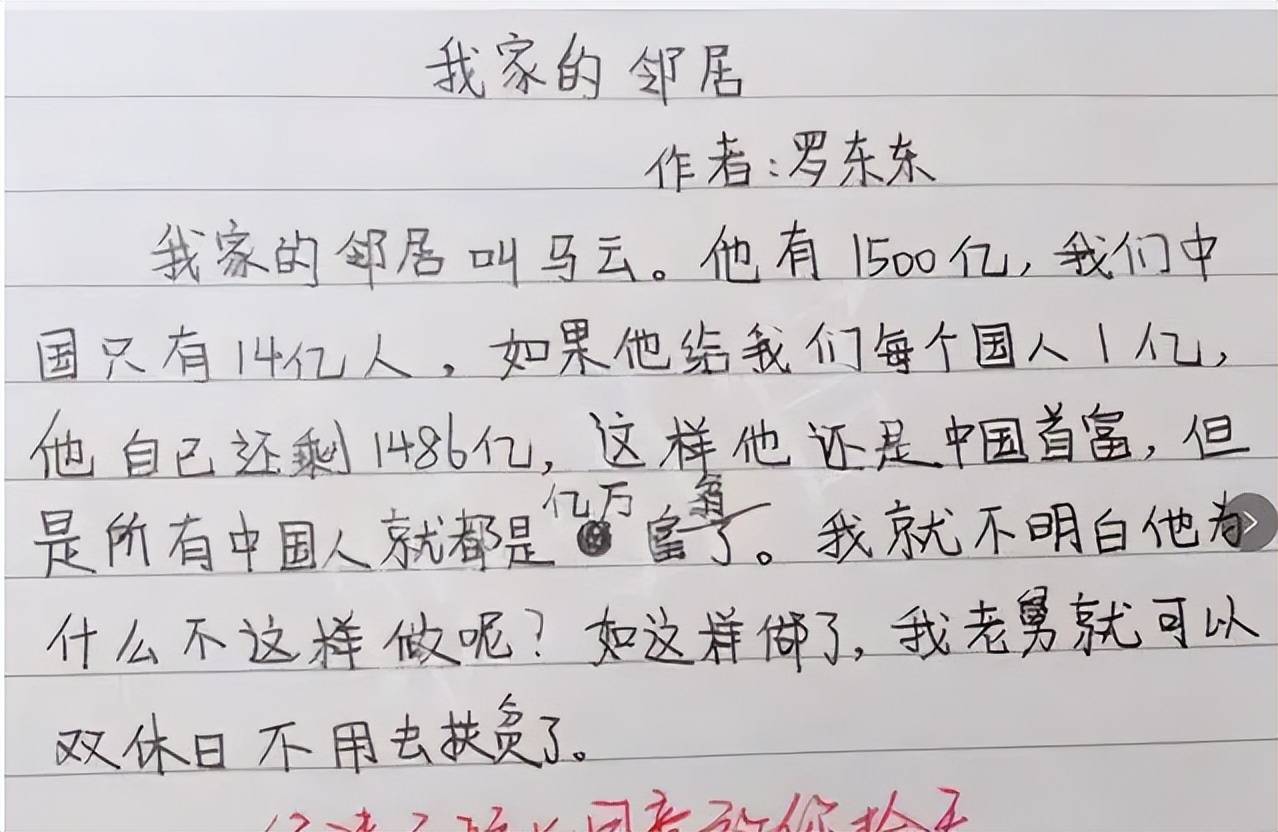 我家的邻居
作者:罗东东
我家的邻居叫马云。他有1500亿,我们中
国只有14亿人,如果他给我们每个国人1亿,
他自己还剩1486亿,这样他还是中国首富,但
是所有中国人就都是亿万富翁了。我就不明白他为
什么不这样做呢?如这样做了,我老舅就可以
双休日不用去扶贫了。